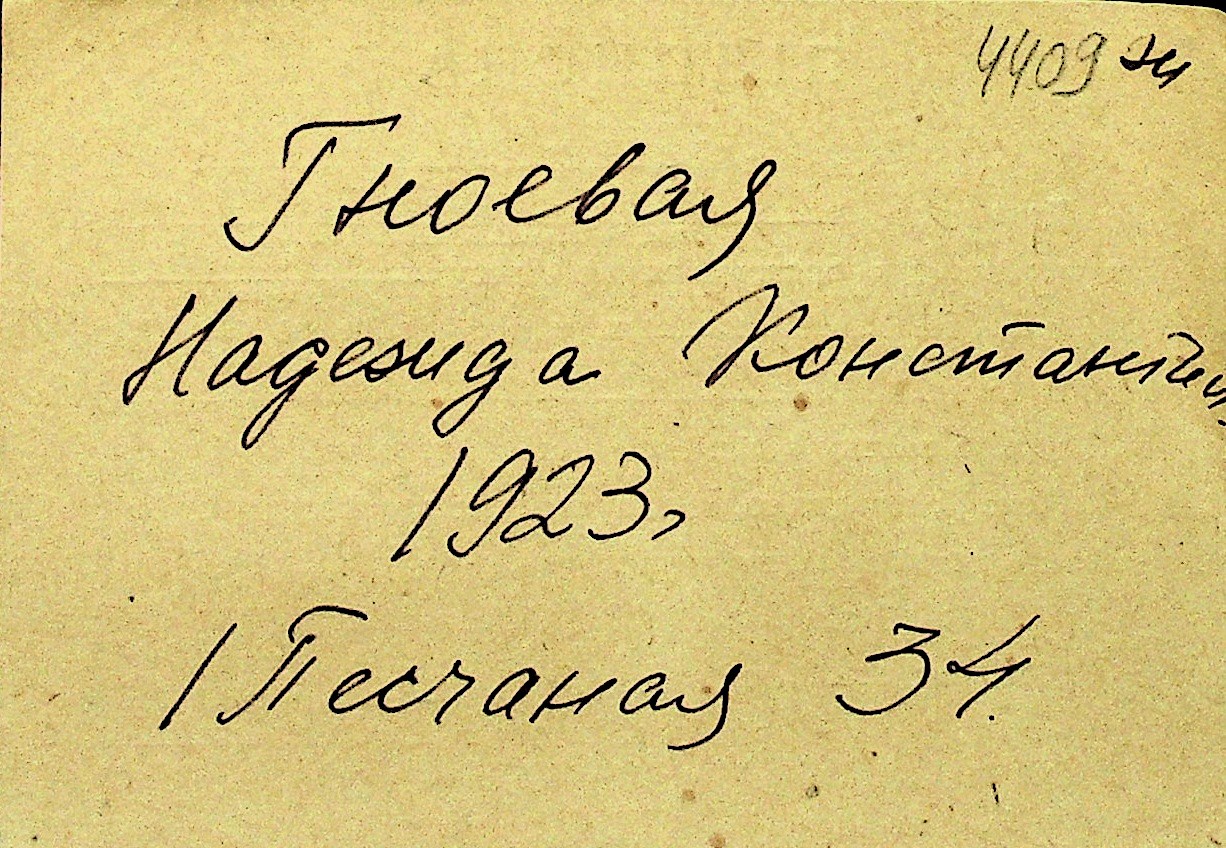 4409 эи
Гноевая
Надежда Константин
1923г
1 Песчаная 34.